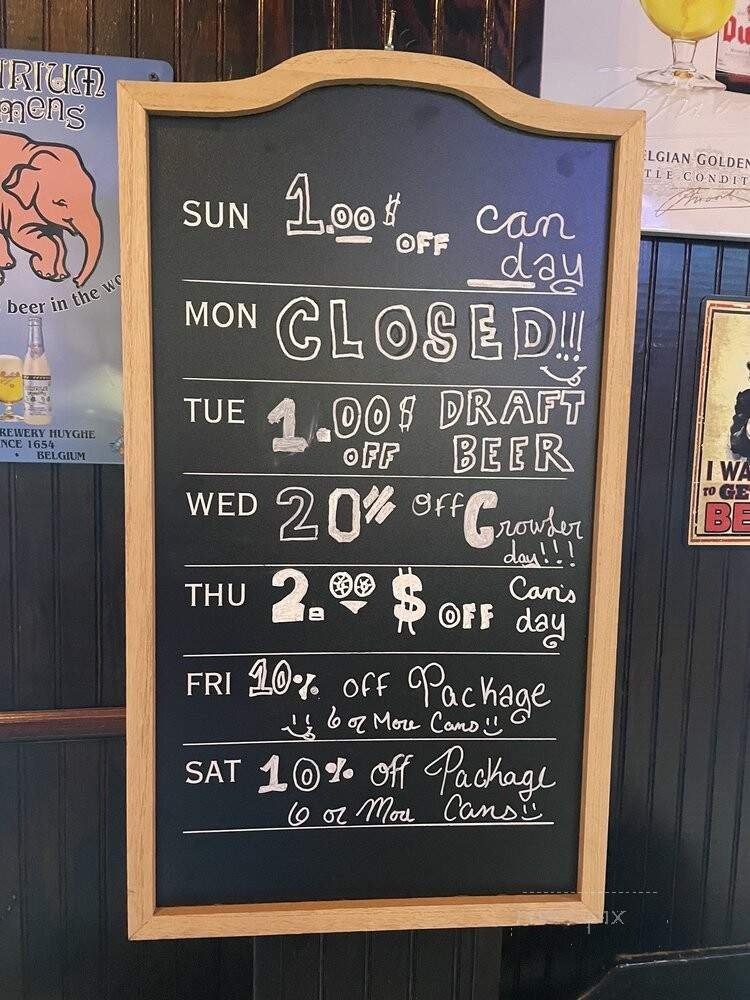 IRIUM
mens
beer in the wo
REWERY HUYGHE
NCE 1654
• BELGIUM
Du
LGIAN GOLDEN
TLE CONDIT
I WA
TO GE
BE
SUN 1.00$ OFF can day
MON CLOSED!!!
TUE 1.00$ OFF DRAFT BEER
WED 20% OFF Crowler day!!!
THU 2.00 $ OFF Can's day
FRI 10% OFF Package
6 or More Cans
SAT 10% off Package
6 or More Cans